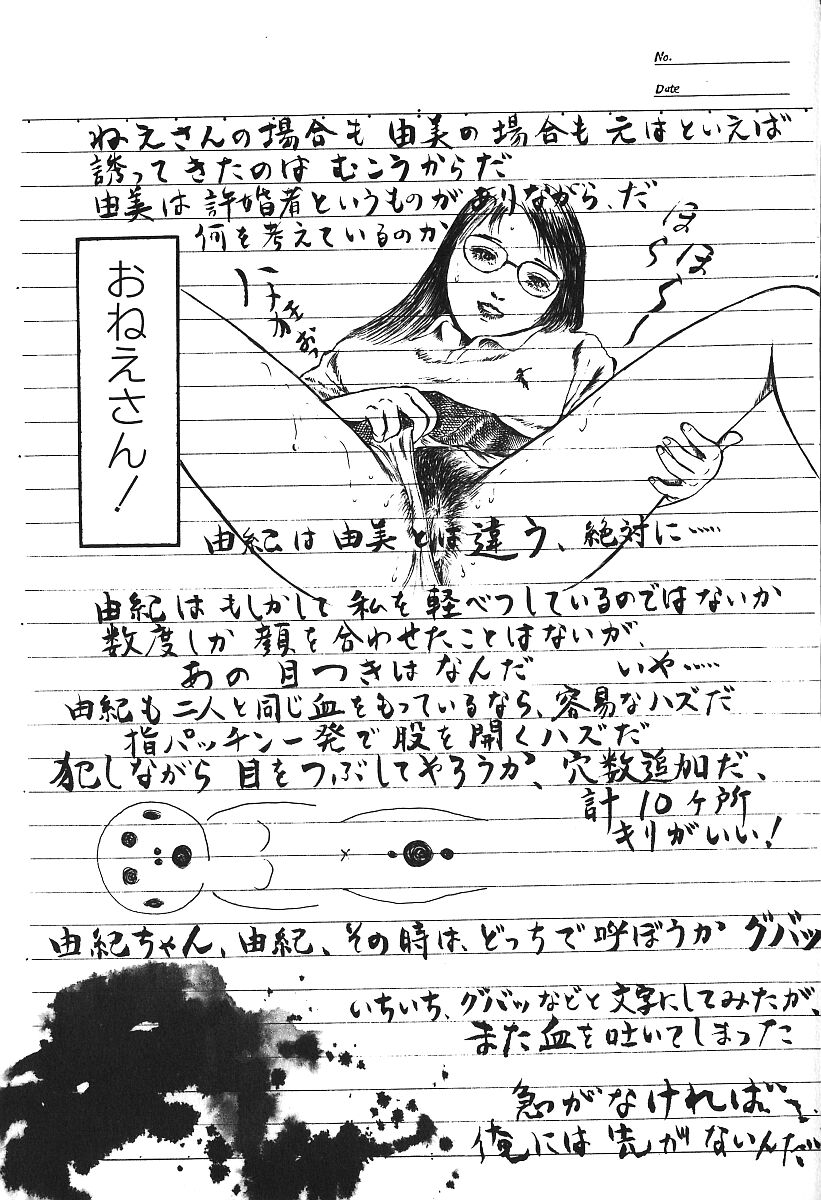 No.
Date
ねえさんの場合も 由美の場合も 元はといえば
誘ってきたのは むこうからだ
由美は許婚者というものがありながら、だ
何を考えているのか
ほ〜ほ〜
おねえさん！
由紀は由美とは違う、絶対に……
由紀はもしかして 私を軽べつしているのではないか
数度しか 顔を合わせたことはないが、
あの目つきはなんだ　いや……
由紀も二人と同じ血をもっているなら、容易なハズだ
指パッチン一発で股を開くハズだ
犯しながら 目をつぶしてやろうか、穴数追加だ、
計 10ヶ所
キリがいい！
由紀ちゃん、由紀、その時は、どっちで呼ぼうか グバッ
いちいち、グバッなどと文字にしてみたが、
また血を吐いてしまった
急がなければ…
俺には先がないんだ